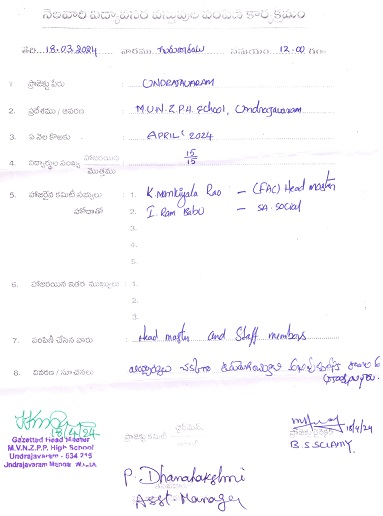 నెలవారి విద్యావసర వస్తువుల పంపిణీ కార్యక్రమం
తేది 18.03.2024 వారము గురువారము సమయం 12.00 గం.
1. ప్రాజెక్టు పేరు : UNDRAJAVARAM
2. ప్రదేశము / ఆవరణ : M.V.N.Z.P.H. School, Undrajavaram
3. ఏ నెల కొరకు : APRIL' 2024
4. విద్యార్థుల సంఖ్య హాజరయిన / మొత్తము : 15/15
5. హాజరైన కమిటీ సభ్యులు : 1. K. Manikyala Rao – (FAC) Head master
హోదాతో 2. I. Ram Babu – SA. Social
3.
4.
5.
6. హాజరయిన ఇతర ముఖ్యులు : 1.
2.
3.
7. పంపిణీ చేసిన వారు : Head master and Staff members
8. వివరణ / సూచనలు :
18/4/24
Gazetted Head Master
M.V.N.Z.P.P. High School
Undrajavaram - 534 216
Undrajavaram Mandal
ప్రాజెక్టు కమిటీ
18/4/24
B.S. SWAMY
P. Dhanalakshmi
Asst. Manager